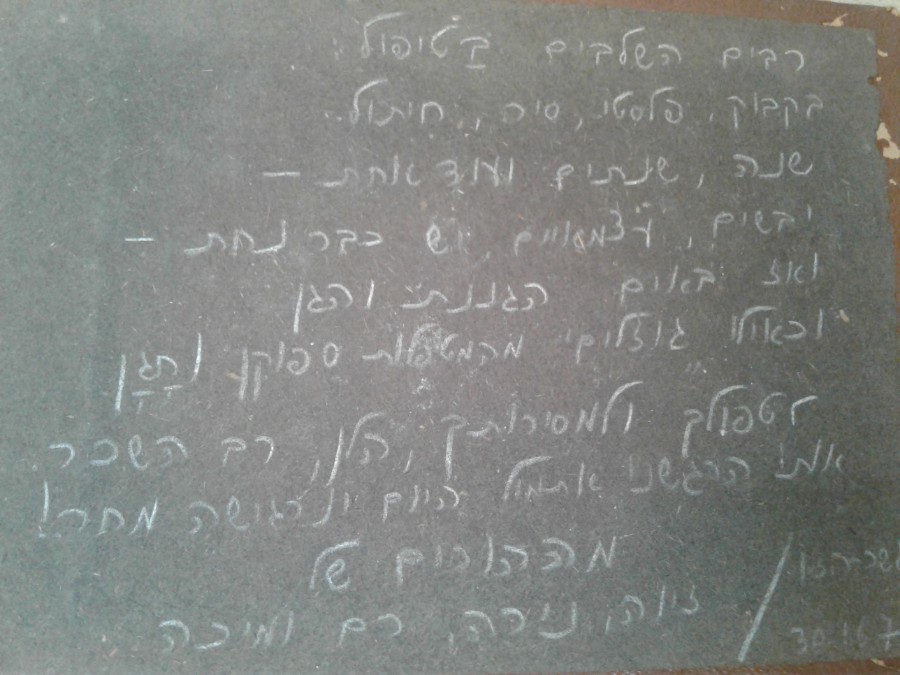 רבים השלבים בַּטיפול:
בקבוק, פלסטי, סיר, חיתול..
שנה, שנתים ועוד אחת –
יבשים, עצמאיים, יש כבר נחת –
ואז באים הגננת והגן
וכאילו גוזלים מהמטפלות סִפוקן וחִנָן
לטפולך ולמסירותך, הלן, רב השכר
אותו הרגשנו אתמול היום ונרגישה מחר!
מההורים של
זיוה, נירה, רם ומיכה